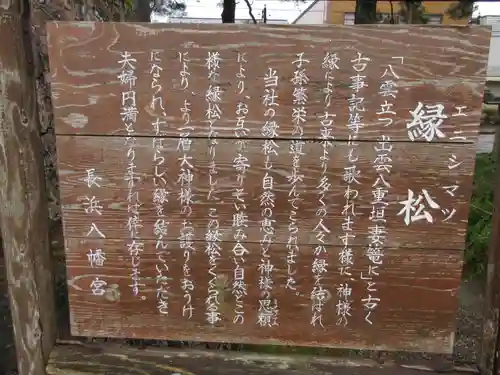 エニシマツ
縁松
「八雲立つ出雲八重垣妻篭に」と古く
古事記等にも歌われます様に、神様の
縁により古来より多くの人々が縁を結ばれ
子孫繁栄の道を歩んでこられました。
当社の縁松も自然の恵みと神様の思頼
により、お互いが寄り添い睦み合い自然とこの
様な縁松になりました。この縁松をくぐれる事
により、より一層大神様のご護りをおうけ
になられ、すばらしい縁を結んでいただき
夫婦円満となりますれば倖に存じます。
長浜八幡宮